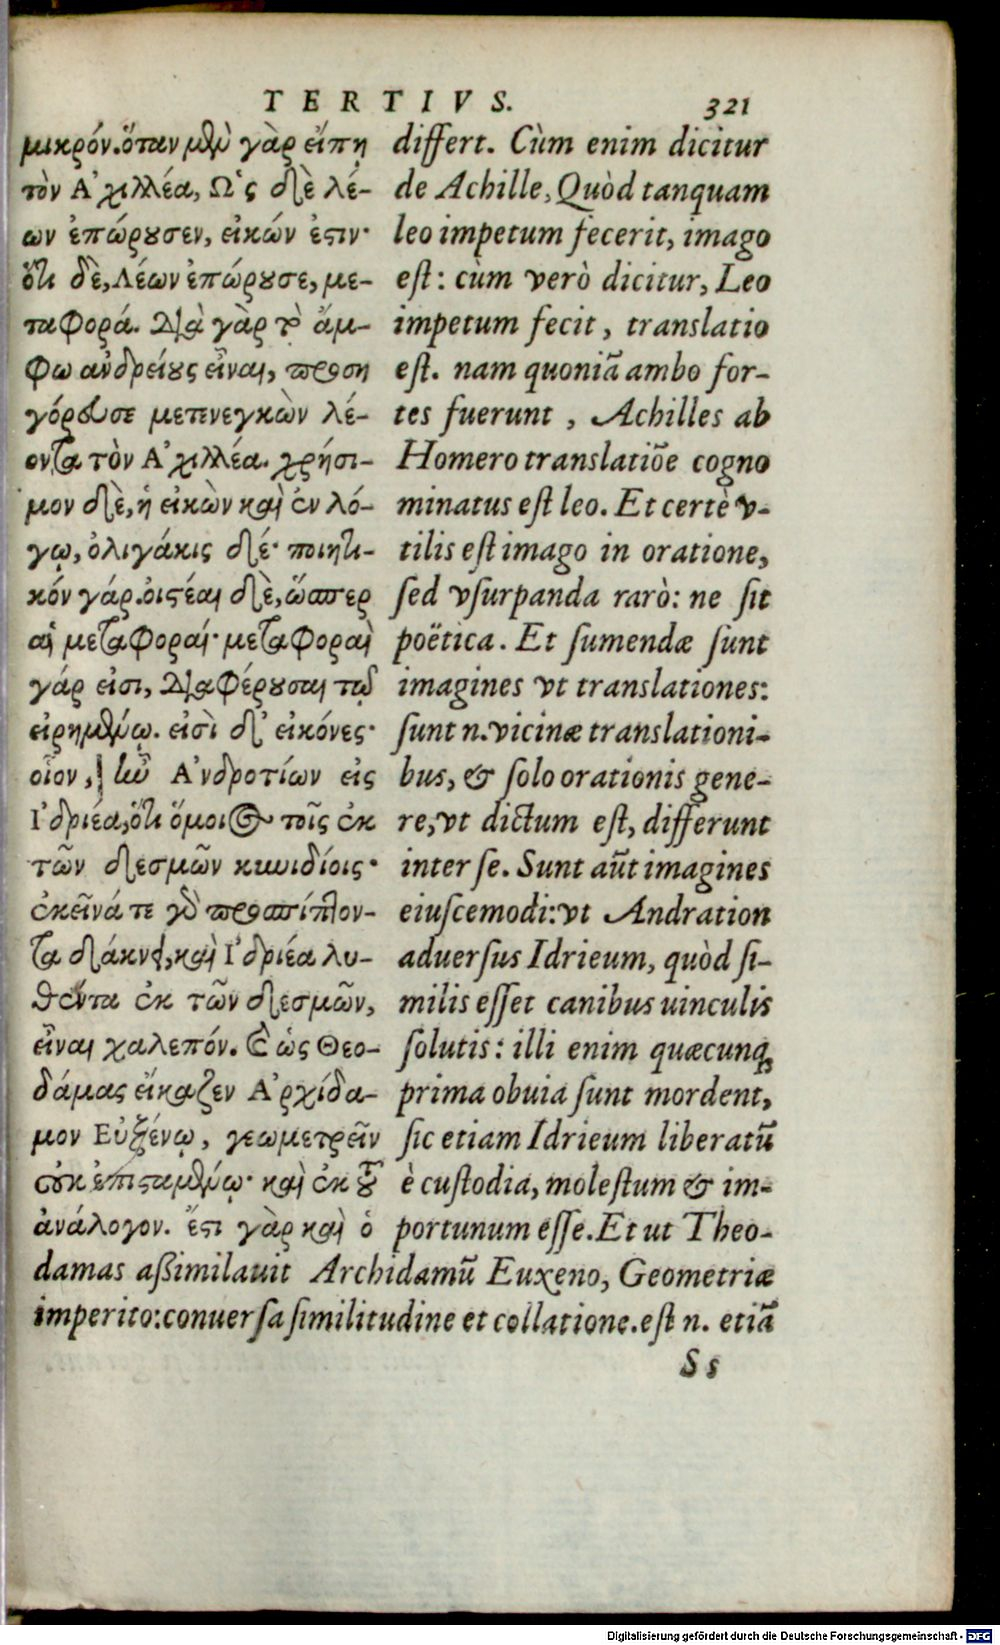 TERTIVS. 321
μικρόν. ὅταν μὲν γὰρ εἴπῃ
τὸν Ἀχιλλέα, Ὡς δὲ λέ-
ων ἐπώρουσεν, εἰκών ἐστιν·
ὅτι δὲ, Λέων ἐπώρουσε, με-
ταφορά. Διὰ γὰρ τὸ ἄμ-
φω ἀνδρείους εἶναι, προση
γόρευσε μετενεγκὼν λέ-
οντα τὸν Ἀχιλλέα. χρήσι-
μον δὲ, ἡ εἰκὼν καὶ ἐν λό-
γῳ, ὀλιγάκις δέ· ποιητι-
κόν γάρ. οἰστέαι δὲ, ὥσπερ
αἱ μεταφοραί· μεταφοραὶ
γάρ εἰσι, Διαφέρουσαι τῷ
εἰρημένῳ. εἰσὶ δ' εἰκόνες·
οἷον, ἣν Ἀνδροτίων εἰς
Ἰδριέα, ὅτι ὅμοιος τοῖς ἐκ
τῶν δεσμῶν κυνιδίοις·
ἐκεῖνά τε γὰρ προσπίπτον-
τα δάκνει, καὶ Ἰδριέα λυ-
θέντα ἐκ τῶν δεσμῶν,
εἶναι χαλεπόν. καὶ ὡς Θεο-
δάμας εἴκαζεν Ἀρχίδα-
μον Εὐξένῳ, γεωμετρεῖν
οὐκ ἐπισταμένῳ· καὶ ἐκ τοῦ
ἀνάλογον. ἔστι γὰρ καὶ ὁ
differt. Cùm enim dicitur
de Achille, Quòd tanquam
leo impetum fecerit, imago
est: cùm verò dicitur, Leo
impetum fecit, translatio
est. nam quoniā ambo for-
tes fuerunt, Achilles ab
Homero translatiōe cogno
minatus est leo. Et certè v-
tilis est imago in oratione,
sed vsurpanda rarò: ne sit
poëtica. Et sumendæ sunt
imagines vt translationes:
sunt n. vicinæ translationi-
bus, & solo orationis gene-
re, vt dictum est, differunt
inter se. Sunt aūt imagines
eiuscemodi: vt Andration
aduersus Idrieum, quòd si-
milis esset canibus uinculis
solutis: illi enim quæcunq;
prima obuia sunt mordent,
sic etiam Idrieum liberatū
è custodia, molestum & im-
portunum esse. Et ut Theo-
damas aßimilauit Archidamū Euxeno, Geometriæ
imperito: conuersa similitudine et collatione. est n. etiā
Ss
Digitalisierung gefördert durch die Deutsche Forschungsgemeinschaft - DFG